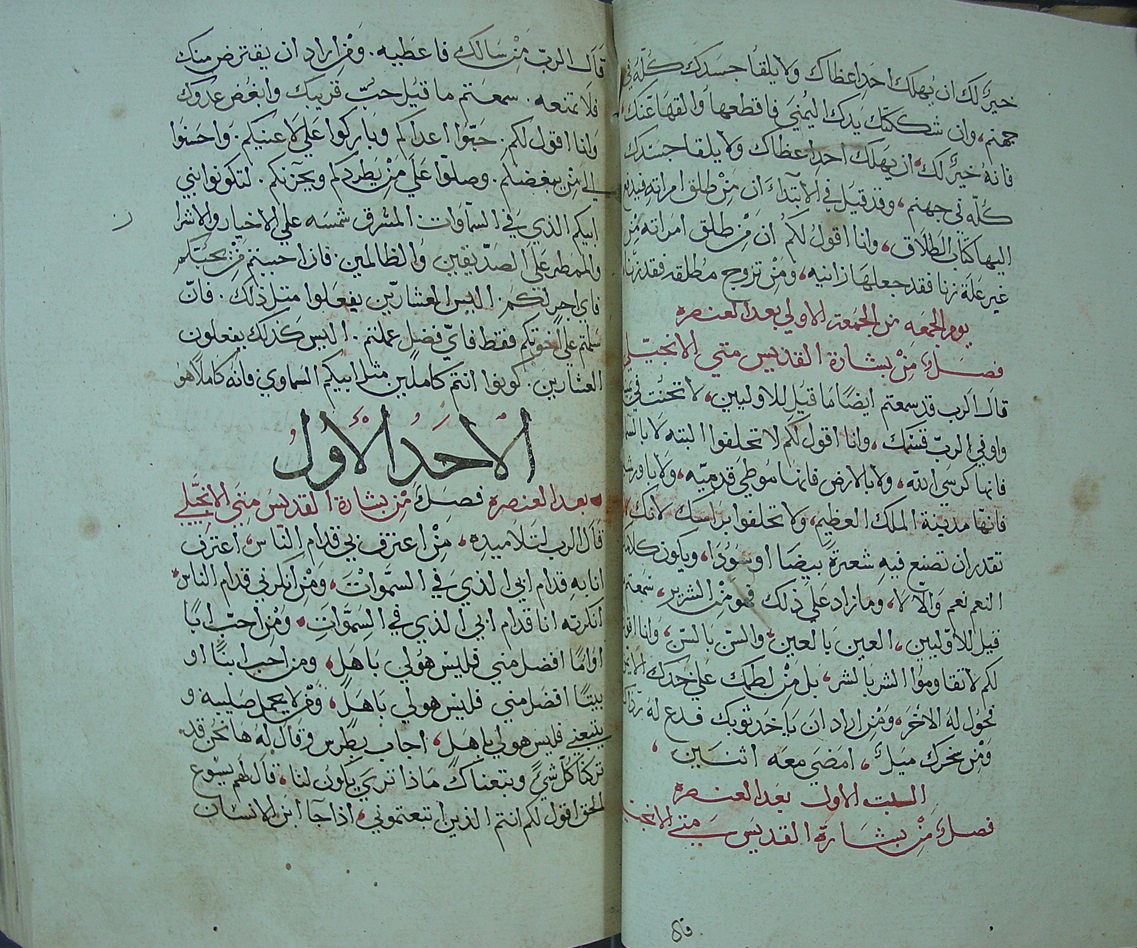 خيرٌ لك ان يهلك احد اعظاك ولا يلقا جسدك كله في
جهنم، وان شككتك يدك اليمني فاقطعها والقها عنك،
فانه خيرٌ لك، ان يهلك احد اعظاك ولا يلقا جسدك
كله في جهنم، وقد قيل في الابتداء ان مَن طلق امراته فيدفع
اليها كتاب الطلاق، وانا اقول لكم ان مَن طلق امراته مِن
غير علة زنا فقد جعلها زانيه، ومن تزوج مطلقه فقد زنا
يوم الجمعه من الجمعة الاولي بعد العنصره
فصلٌ مِن بشارة القديس متي الانجيلي
قال الرب قد سمعتم ايضًا ما قيل للاوليين، لا تحنث في
واوفي الرب قسمك، وانا اقول لكم لا تحلفوا البته لا بالسما
فانها كرسي الله، ولا بالارض فانها موطي قدميه، ولا باورشليم
فانها مدينة الملك العظيم، ولا تحلفوا براسك لانك
تقدر ان تصنع فيه شعرة بيضا او سودا، ويكون كلامكم
النعم نعم والا لا، وما زاد علي ذلك فهو من الشرير، سمعتم
قيل للاوليين، العين بالعين والسن بالسن، وانا اقول
لكم لا تقاوموا الشر بالشر، بل مَن لطمك علي خدك الايمن
فحول له الاخر، ومن اراد ان ياخد ثوبك فدع له رداك
ومن سخرك ميلًا، امضي معه اثنين،
السبت الاول بعد العنصره
فصلٌ مِن بشارة القديس متي الانجيلي
قال
قال الرب مَن سالك فاعطيه. ومن اراد ان يقترض منك
فلا تمنعه. سمعتم ما قيل حب قريبك وابغض عدوك
وانا اقول لكم. حبّوا اعداكم وباركوا علي لاعنيكم. واحسنوا
الي من يبغضكم. وصلّوا علي من يطردكم ويحزنكم. لتكونوا بني
ابيكم الذي في السماوات المشرق شمسه علي الاخيار والاشرار
والممطر علي الصديقين والظالمين. فان احببتم من يحبّكم
فاي اجر لكم. اليس العشارين يفعلوا مثل ذلك. فان
سلمتم علي اخوتكم فقط فاي فضل عملتم. اليس كذلك يفعلون
العشارين. كونوا انتم كاملين مثل ابيكم السماوي فانه كاملًا هو
الاحد الاول
بعد العنصره فصلٌ مِن بشارة القديس متي الانجيلي
قال الرب لتلاميده، مَن اعترف بي قدام الناس، اعترف
انا به قدام ابي الذي في السموات، ومَن انكرني قدام الناس
انكرته انا قدام ابي الذي في السموات، ومَن احب ابًا
او امًا افضل مني فليس هو لي باهل، ومن احب ابنًا او
بيتًا افضل مني فليس هو لي باهل، ومَن لا يحمل صليبه و
يتبعني فليس هو لي باهل، اجاب بطرس وقال له ها نحن قد
تركنا كل شيً وتبعناك ماذا تري يكون لنا، قال لهم يسوع
الحق اقول لكم انتم الذين اتبعتموني، اذا جا ابن الانسان